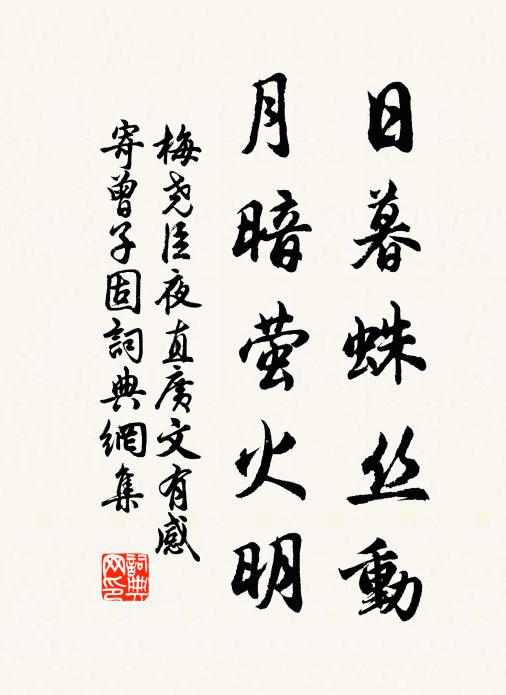 日暮蛛丝動
月暗萤火明
梅尧臣夜直廣文有感
寄曾子固詞典網集
詞典网印